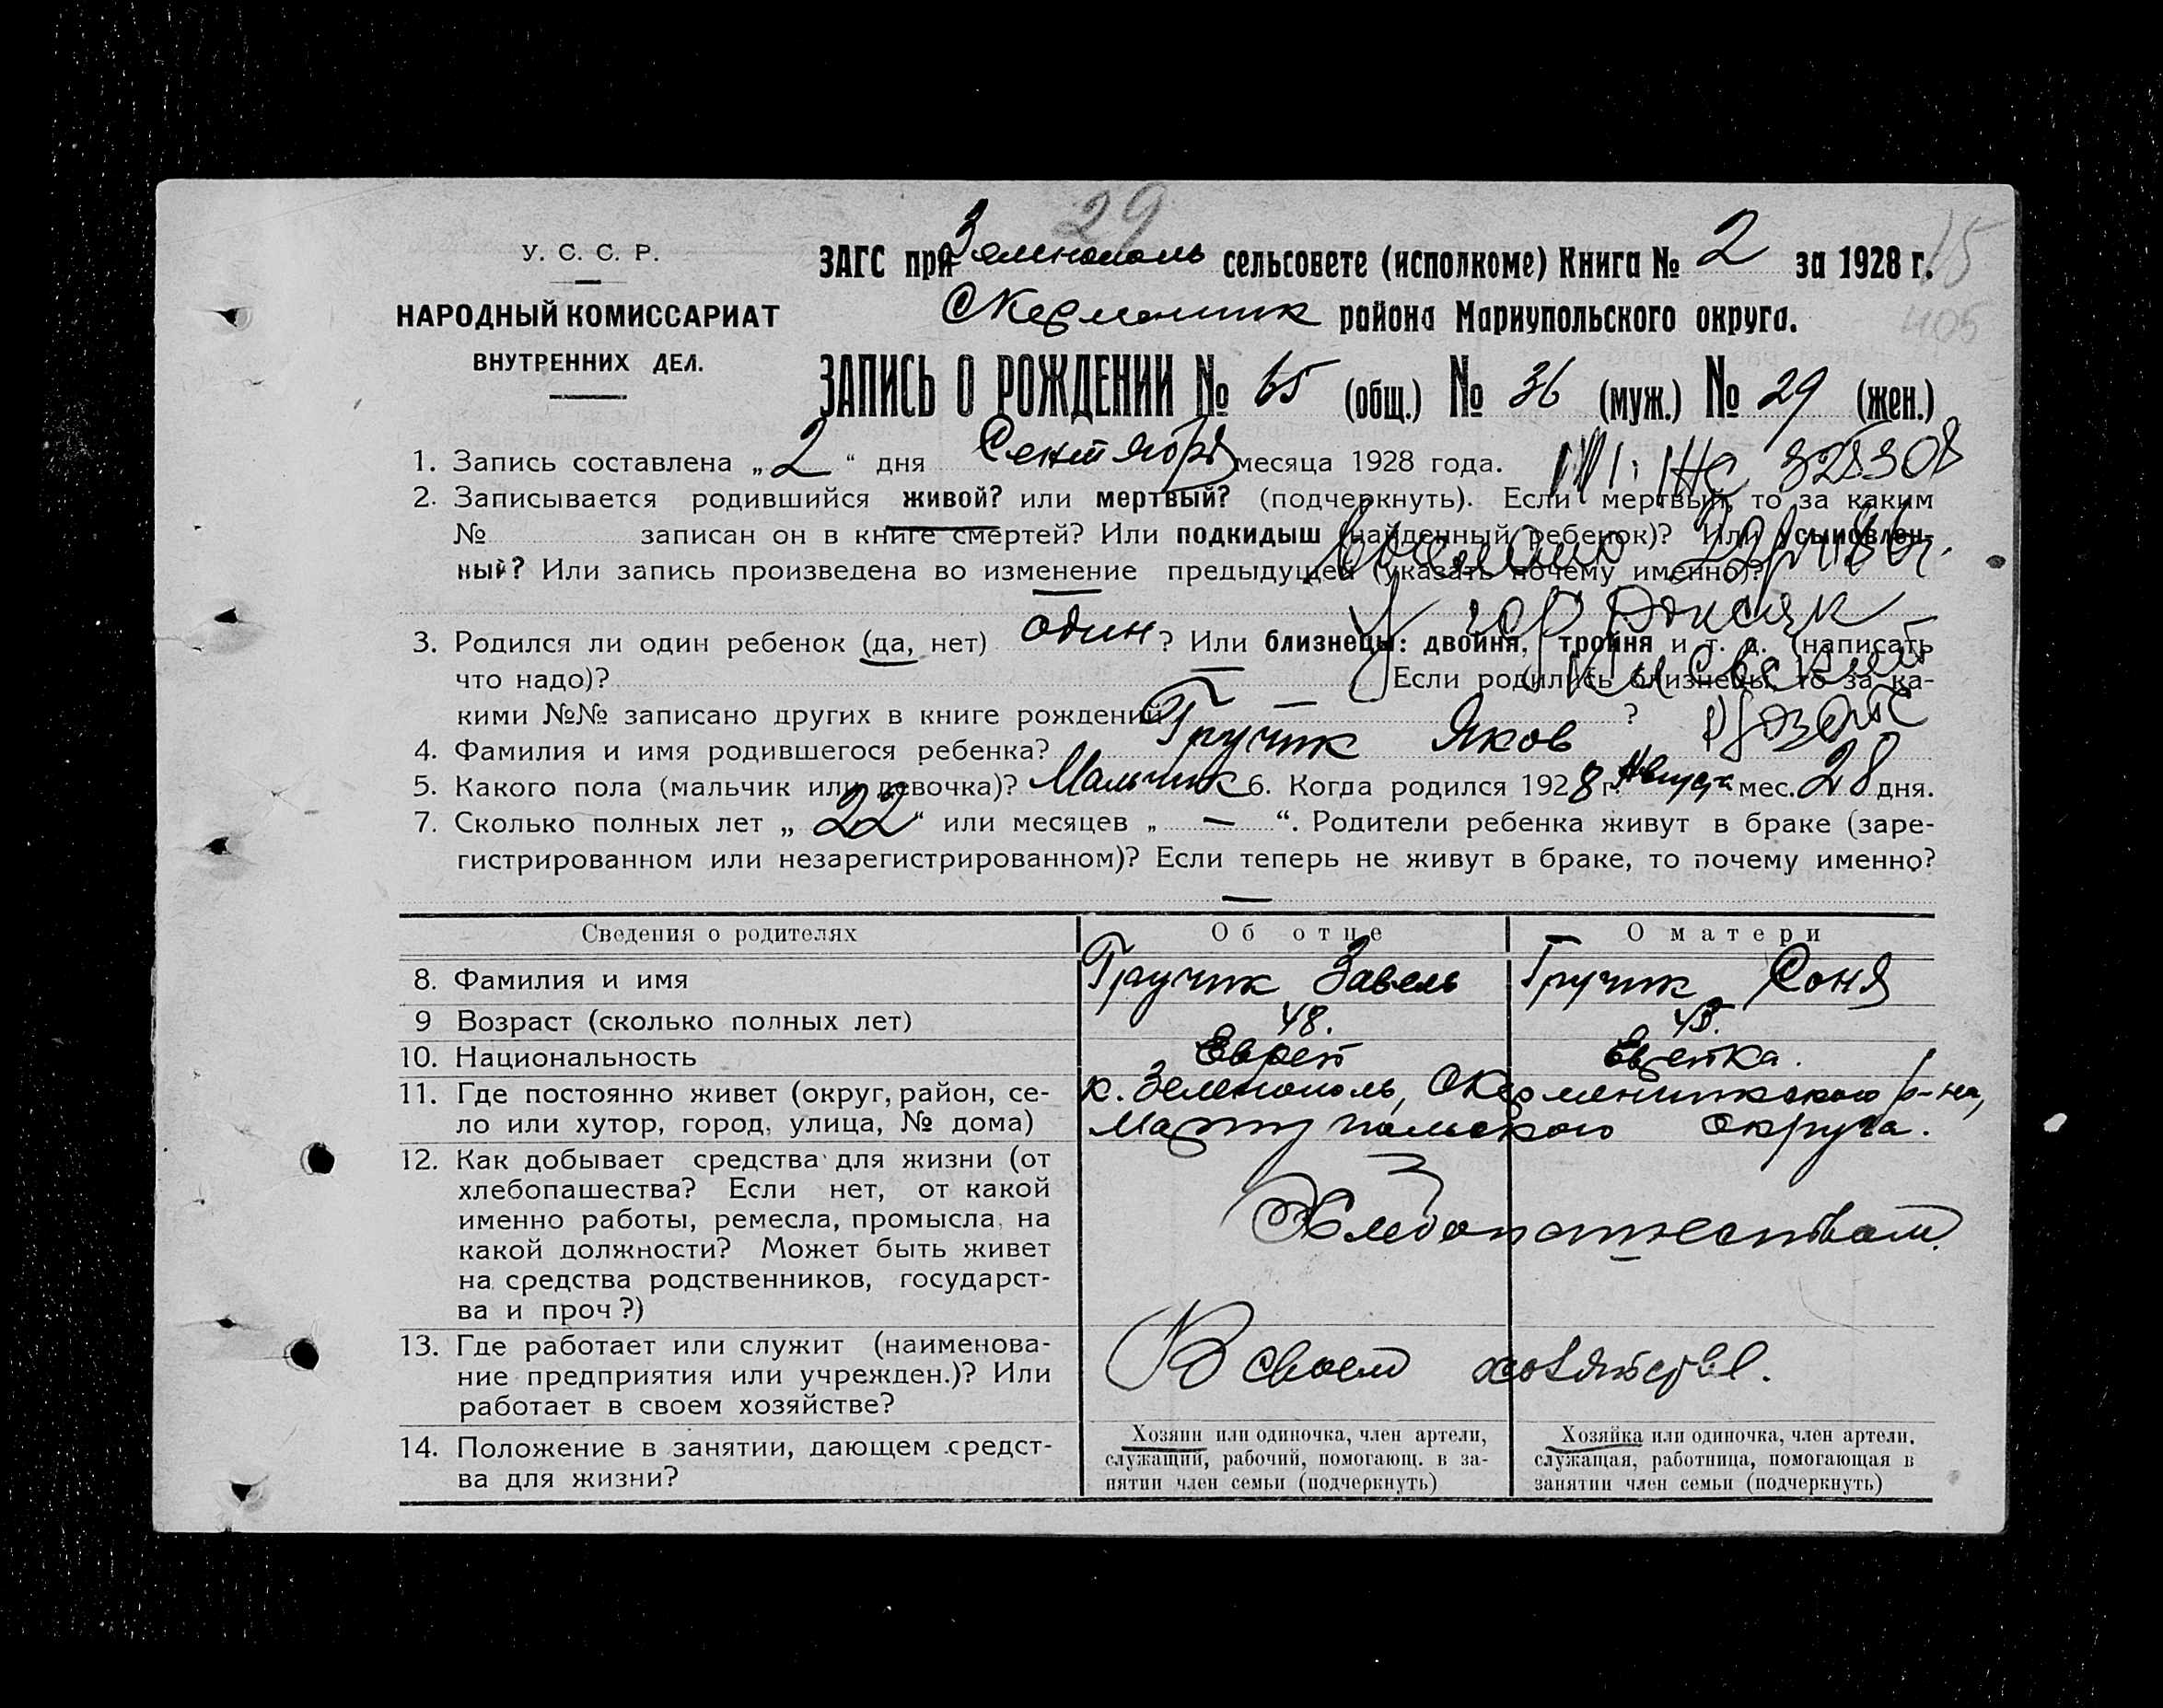 29
У. С. С. Р.
НАРОДНЫЙ КОМИССАРИАТ
ВНУТРЕННИХ ДЕЛ.
ЗАГС при Зеленополь сельсовете (исполкоме) Книга № 2 за 1928 г.
15
405
района Мариупольского округа.
ЗАПИСЬ О РОЖДЕНИИ № 65 (общ.) № 36 (муж.) № 29 (жен.)
1. Запись составлена „ 2 “ дня Сентября месяца 1928 года.
328308
2. Записывается родившийся живой? или мертвый? (подчеркнуть). Если мертвый, то за каким
№ записан он в книге смертей? Или подкидыш (найденный ребенок)? Или усыновлен-
ный? Или запись произведена во изменение предыдущей (указать почему именно)?
3. Родился ли один ребенок (да, нет) один ? Или близнецы: двойня, тройня и т. д. (написать
что надо)? Если родились близнецы, то за ка-
кими №№ записано других в книге рождений — ?
4. Фамилия и имя родившегося ребенка? Гручик Яков
5. Какого пола (мальчик или девочка)? Мальчик 6. Когда родился 1928 г. Августа мес. 28 дня.
7. Сколько полных лет „ 22 “ или месяцев „ — “. Родители ребенка живут в браке (заре-
гистрированном или незарегистрированном)? Если теперь не живут в браке, то почему именно?
—
Сведения о родителях Об отце О матери
8. Фамилия и имя Гручик Завель Гручик Соня
9 Возраст (сколько полных лет) 48. 43.
10. Национальность Еврей Еврейка.
11. Где постоянно живет (округ, район, се- к. Зеленополь, р-на,
ло или хутор, город, улица, № дома) Мариупольского округа.
12. Как добывает средства для жизни (от
хлебопашества? Если нет, от какой
именно работы, ремесла, промысла, на Хлебопашеством.
какой должности? Может быть живет
на средства родственников, государст-
ва и проч?)
13. Где работает или служит (наименова-
ние предприятия или учрежден.)? Или В своем хозяйстве.
работает в своем хозяйстве?
14. Положение в занятии, дающем средст-
ва для жизни?
Хозяин или одиночка, член артели,
служащий, рабочий, помогающ. в за-
нятии член семьи (подчеркнуть)
Хозяйка или одиночка, член артели,
служащая, работница, помогающая в
занятии член семьи (подчеркнуть)